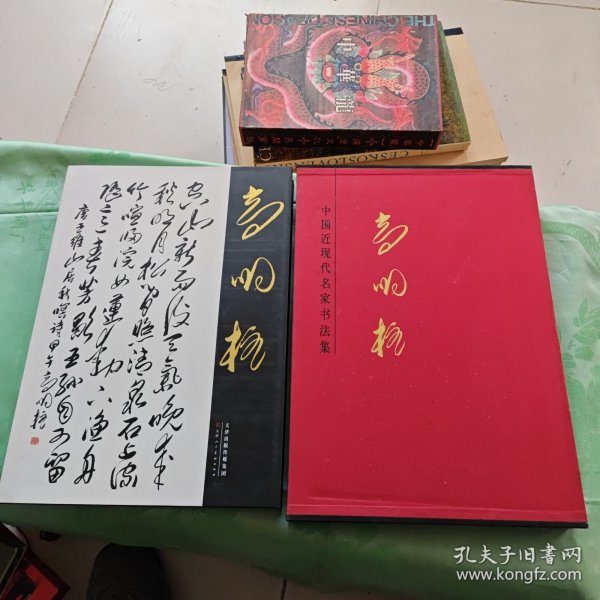 THE CHINESE DRAGON
中華龍
CESKOSLOVENSK
空山新雨後天氣晚來
秋明月松間照清泉石上流
竹喧歸浣女蓮動下漁舟
随意春芳歇王孫自可留
唐王維山居秋暝詩甲午高明
高明
天津出版传媒集团
天津人民美术出版社
中国近现代名家书法集
高明
孔夫子旧书网
www.kongfz.com